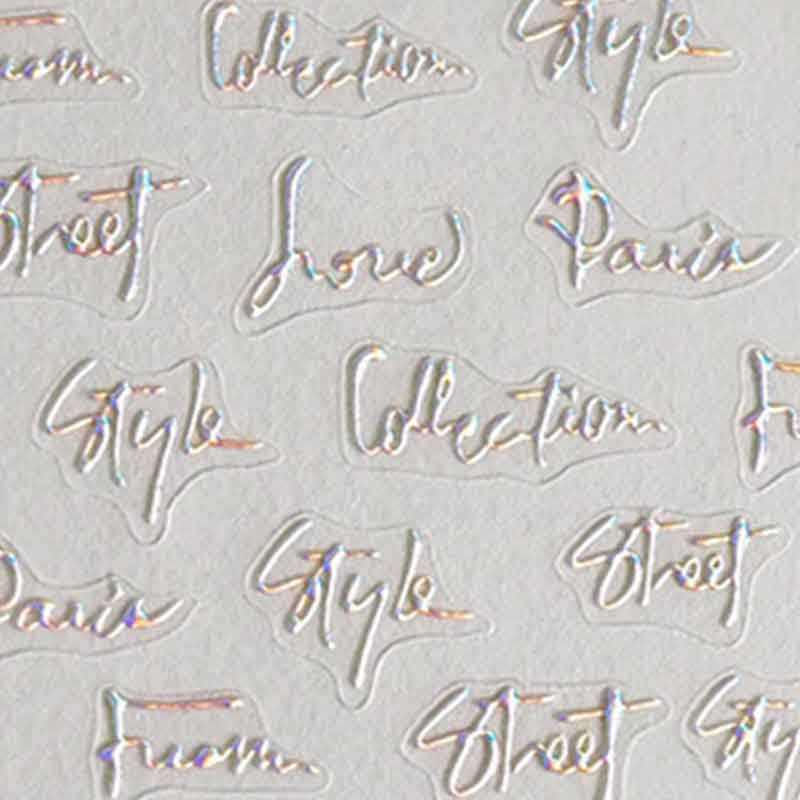 Collection Style
Street Love Paris
Style Collection
Paris Style Street
From Street